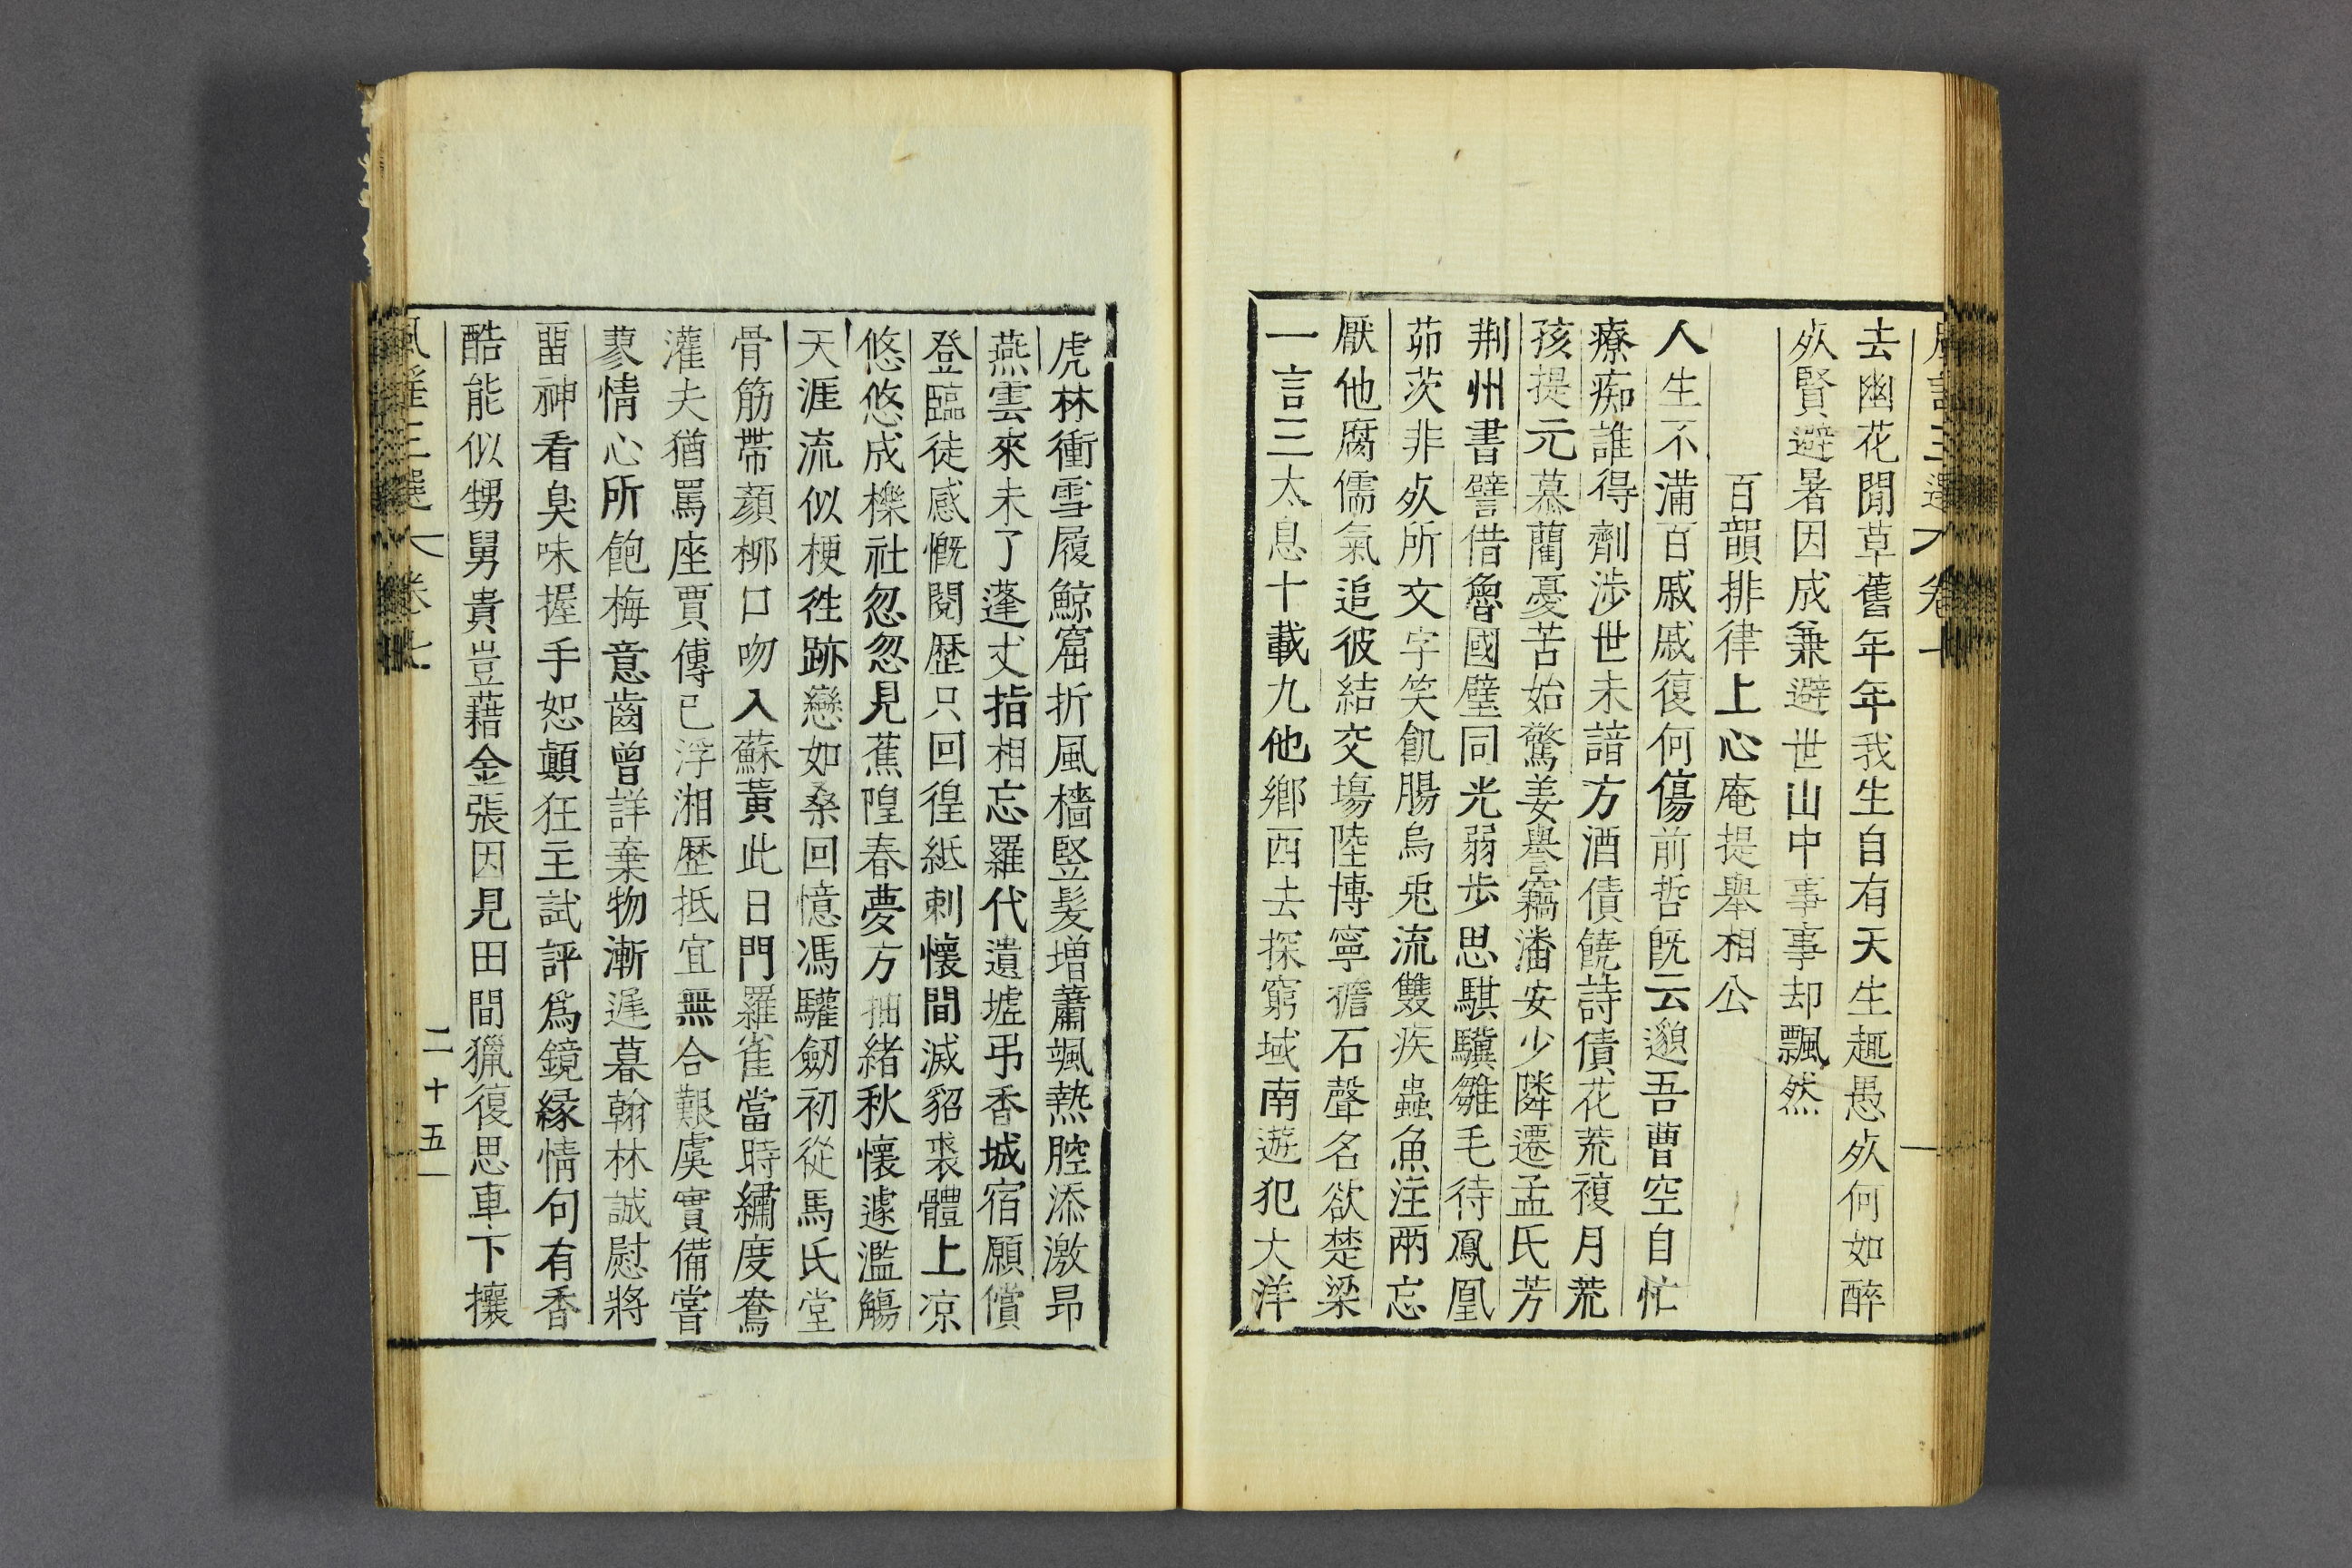 去幽花閒草舊年年我生自有天生趣愚夊何如醉
夊賢避暑因成兼避世山中事事却飄然
百韻排律上心庵提舉相公
人生不滿百戚戚復何傷前哲旣云邈吾曹空自忙
療痴誰得劑涉世未諳方酒債饒詩債花荒複月荒
孩提元慕藺憂苦始驚姜譽竊潘安少隣遷孟氏芳
荆州書譬借魯國璧同光弱步思騏驥雛毛待鳳凰
茆茨非夊所文字笑飢腸烏兎流雙疾蟲魚注兩忘
厭他腐儒氣追彼結交塲陸博寧擔石聲名欲楚梁
一言三太息十載九他鄉西去探窮域南遊犯大洋
虎林衝雪履鯨窟折風檣竪髮增蕭颯熱腔添激昂
燕雲來未了蓬丈指相忘羅代遺墟弔香城宿願償
登臨徒感慨閱歷只回徨紙刺懷間滅貂裘體上凉
悠悠成櫟社忽忽見蕉隍春夢方抽緒秋懷遽濫觴
天涯流似梗徃跡戀如桑回憶馮驩劒初從馬氏堂
骨筋帶顔柳口吻入蘇黃此日門羅雀當時繡度鴦
灌夫猶罵座賈傅已浮湘歷抵宜無合艱虞實備嘗
蓼情心所飽梅意齒曾詳棄物漸遲暮翰林誠慰將
畱神看臭味握手恕顚狂主試評爲鏡緣情句有香
酷能似甥舅貴豈藉金張因見田間獵復思車下攘
風謠三選 卷七
二十五